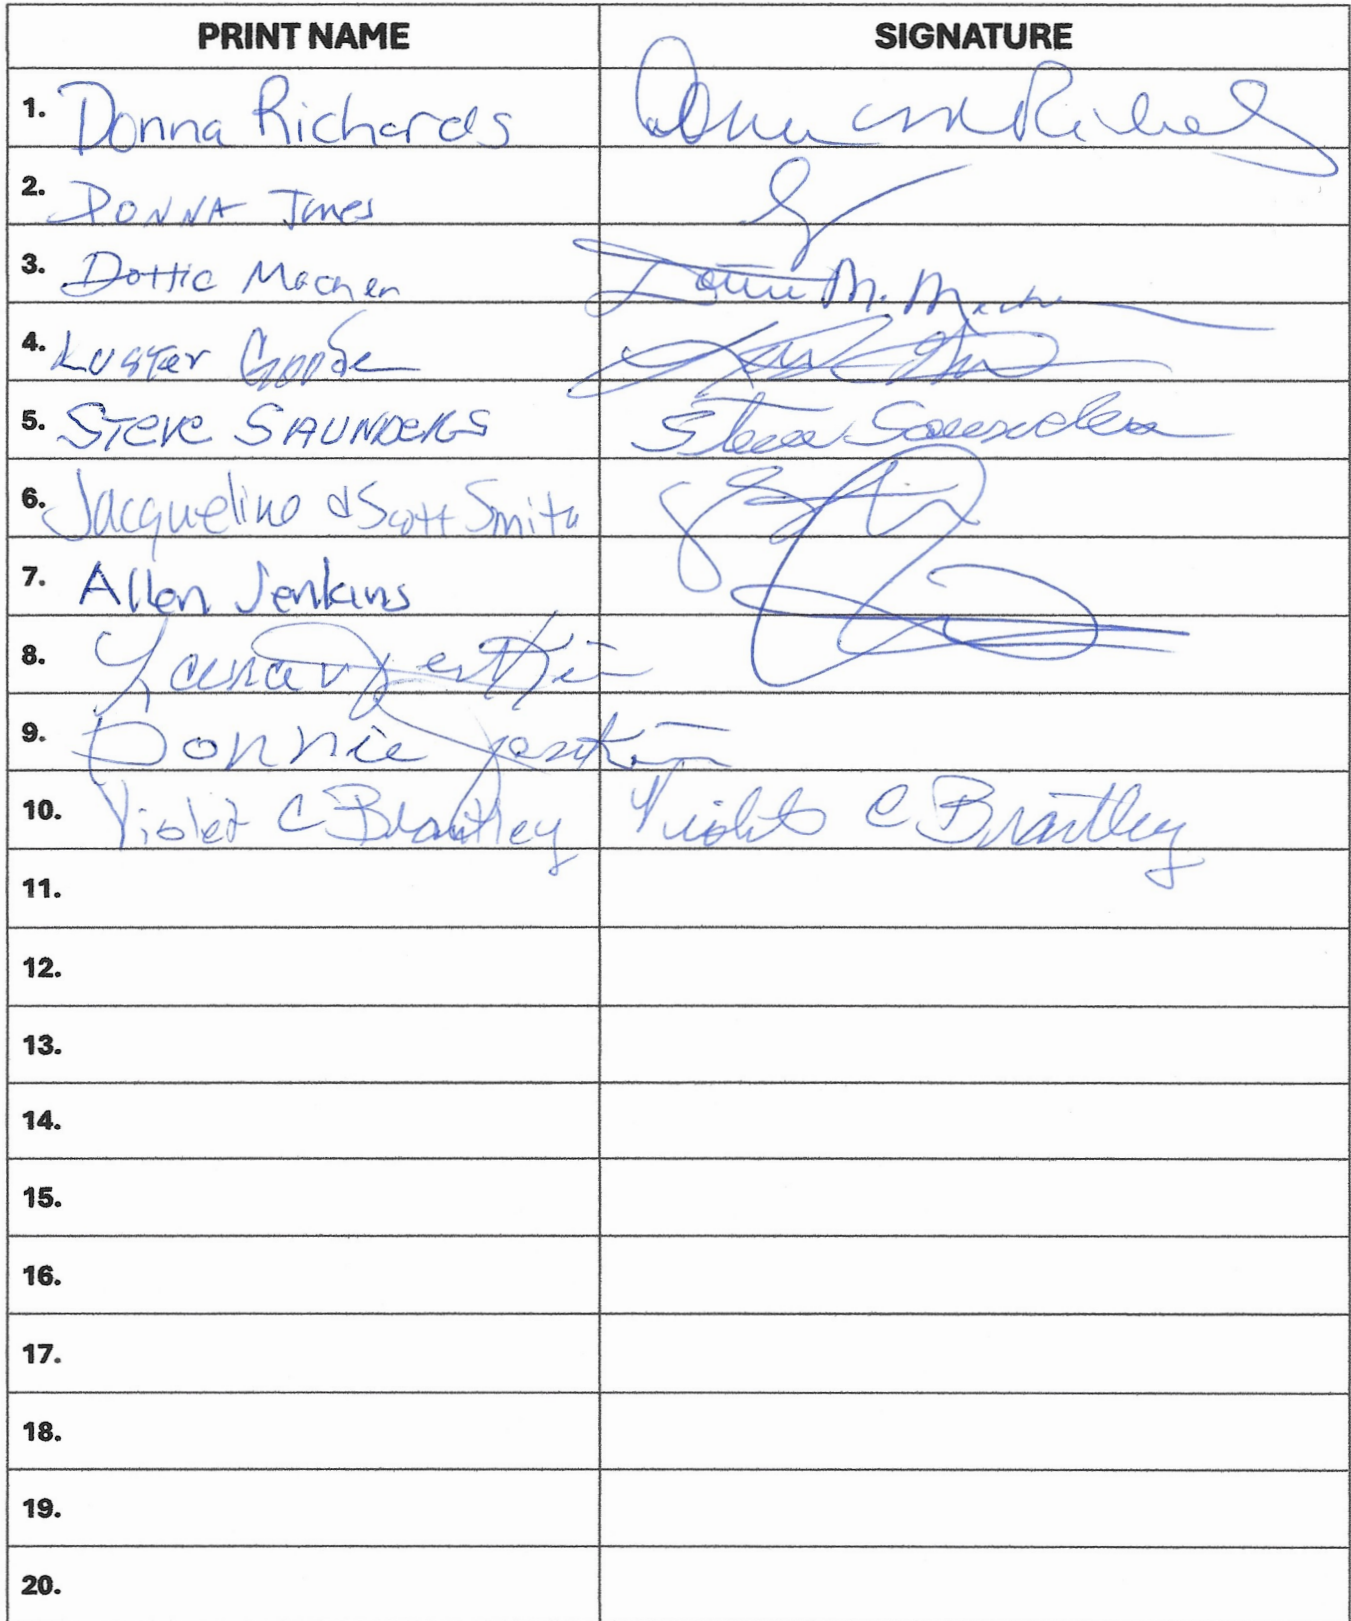 PRINT NAME SIGNATURE
1. Donna Richards
2. DONNA Jones
3. Dottie Machen Dottie M. Machen
4. Luster Goode
5. STEVE SAUNDERS Steve Saunders
6. Jacqueline & Scott Smith
7. Allen Jenkins
8.
9. Donnie
10. Violet C Brantley Violet C Brantley
11.
12.
13.
14.
15.
16.
17.
18.
19.
20.